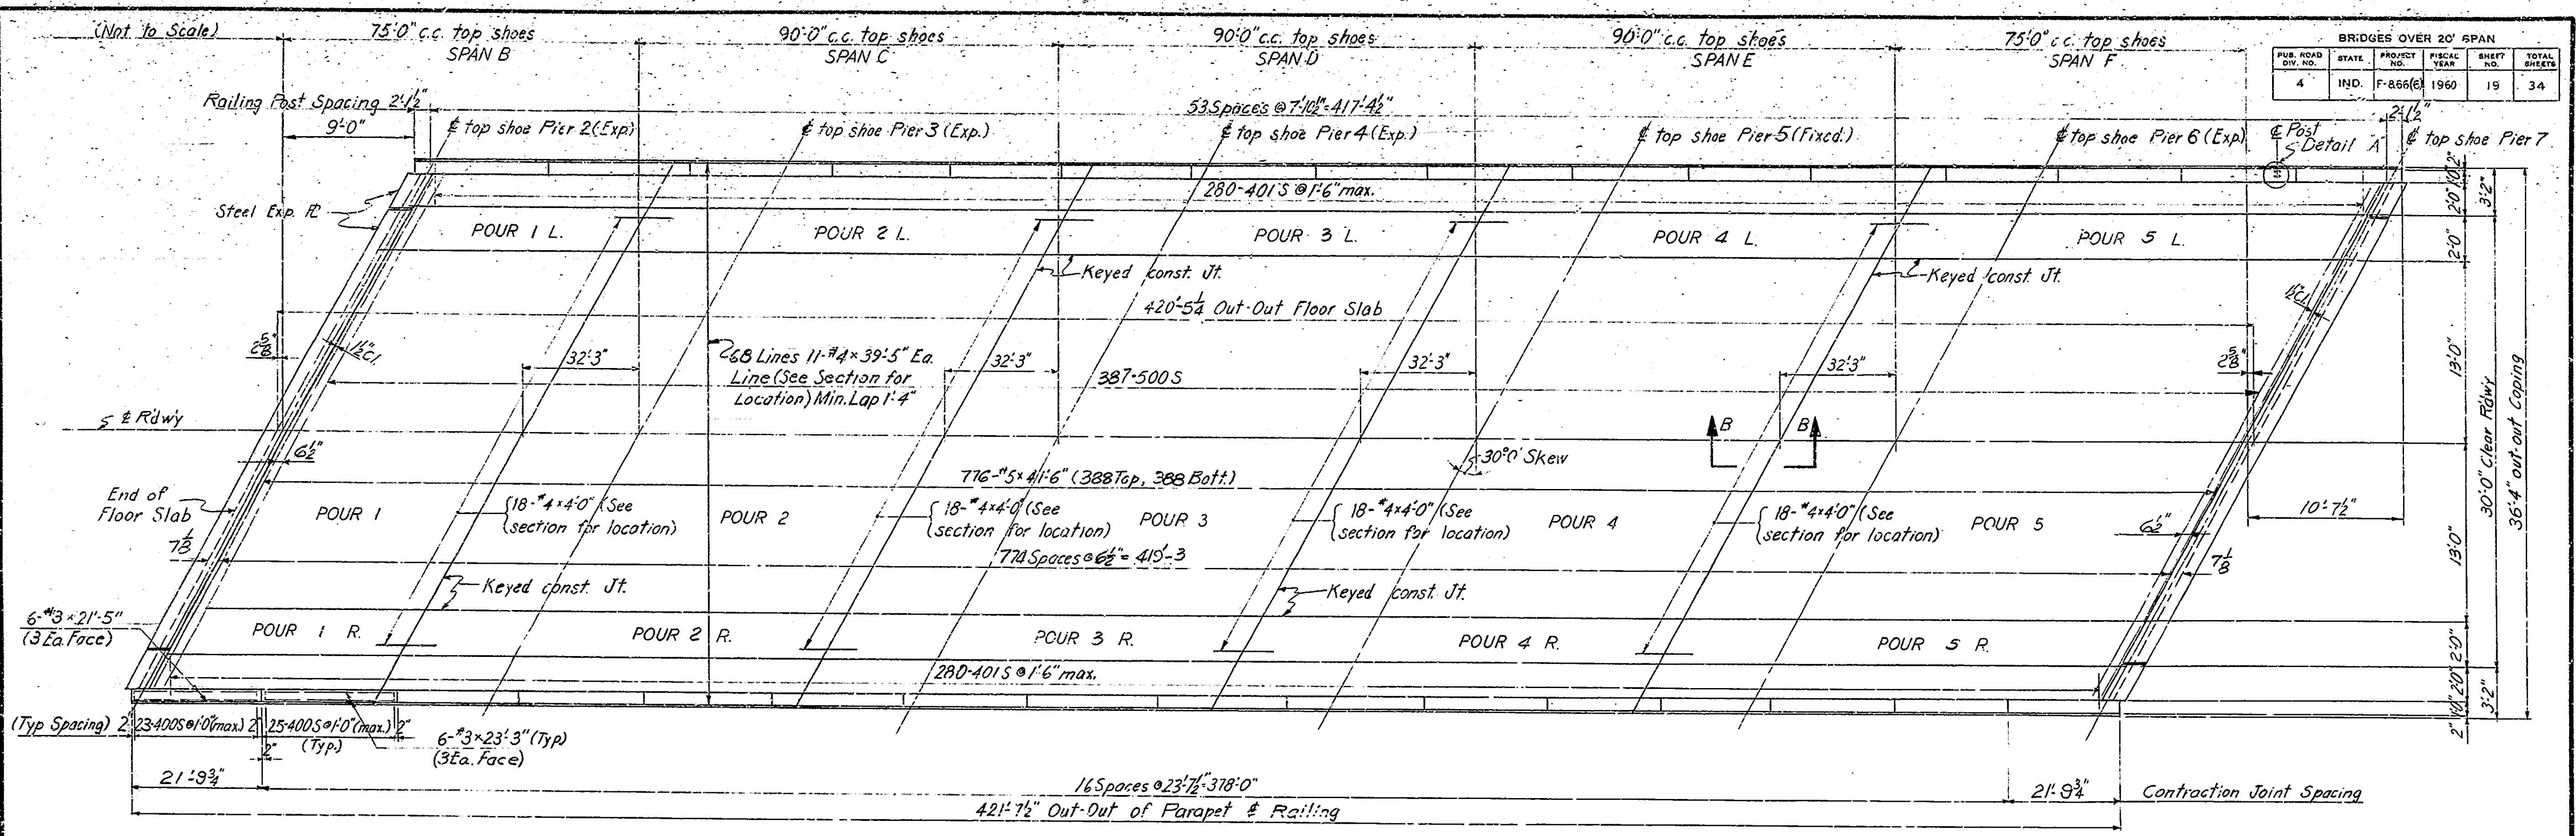 (Not to Scale)
75'-0" c.c. top shoes
SPAN B
90'-0" c.c. top shoes
SPAN C
90'-0" c.c. top shoes
SPAN D
90'-0" c.c. top shoes
SPAN E
75'-0" c.c. top shoes
SPAN F
BRIDGES OVER 20' SPAN
PUB. ROAD DIV. NO. STATE PROJECT NO. FISCAL YEAR SHEET NO. TOTAL SHEETS
4 IND. F-866(6) 1960 19 34
Railing Post Spacing 2'-1½"
53 Spaces @ 7'-10½" = 417'-4½"
2'-1½"
9'-0"
℄ top shoe Pier 2 (Exp)
℄ top shoe Pier 3 (Exp.)
℄ top shoe Pier 4 (Exp.)
℄ top shoe Pier 5 (Fixed.)
℄ top shoe Pier 6 (Exp)
℄ Post
Detail A
℄ top shoe Pier 7
280-401S @ 1'-6" max.
Steel Exp. ℙ
POUR 1 L.
POUR 2 L.
POUR 3 L.
POUR 4 L.
POUR 5 L.
2'-0" 1'-0" 2"
3'-2"
2'-0"
Keyed const. Jt.
Keyed const. Jt.
420'-5¼ Out-Out Floor Slab
2⅝"
1½"Cl.
32'-3"
68 Lines 11-#4 × 39'-5" Ea.
Line (See Section for
Location) Min. Lap 1'-4"
32'-3"
387-500S
32'-3"
32'-3"
2⅝"
1½"Cl.
13'-0"
30'-0" Clear Rdwy
36'-4" out-out Coping
℄ Rdwy
6½"
B B
30°0' Skew
776-#5 × 41'-6" (388 Top, 388 Bott.)
End of
Floor Slab
POUR 1
18-#4×4'-0" (See
section for location)
POUR 2
18-#4×4'-0" (See
section for location)
POUR 3
18-#4×4'-0" (See
section for location)
POUR 4
18-#4×4'-0" (See
section for location)
POUR 5
6½"
10'-7½"
7⅛
774 Spaces @ 6½" = 419'-3
7⅛
13'-0"
Keyed const. Jt.
Keyed const. Jt.
6-#3×21'-5"
(3 Ea. Face)
POUR 1 R.
POUR 2 R.
POUR 3 R.
POUR 4 R.
POUR 5 R.
2'-0"
280-401S @ 1'-6" max.
2" 1'-0" 2'-0"
3'-2"
(Typ Spacing) 2" 23-400S @ 1'-0" (max) 2" 25-400S @ 1'-0" (max.) 2"
(Typ.)
2"
6-#3×23'-3" (Typ)
(3 Ea. Face)
21'-9¾"
16 Spaces @ 23'-7½" = 378'-0"
21'-9¾"
Contraction Joint Spacing
421'-7½" Out-Out of Parapet & Railing